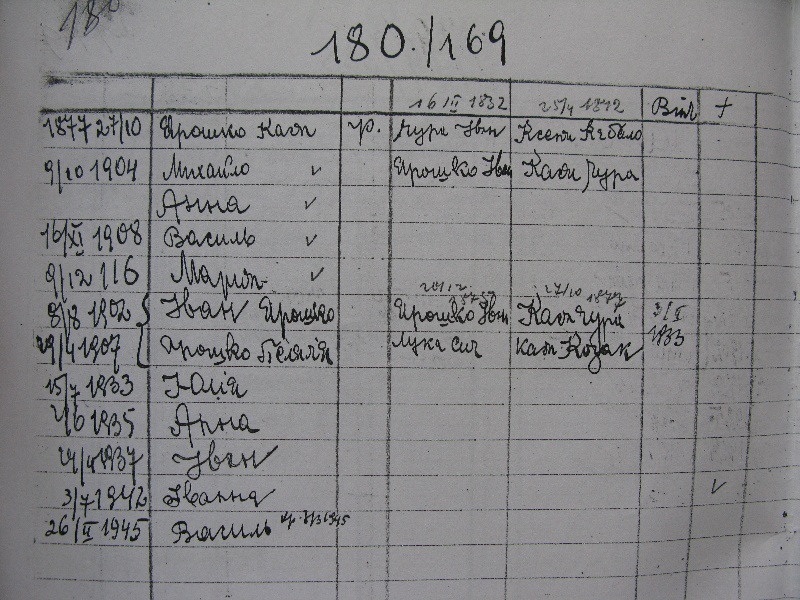 180
180./169
16 II 1832 25/4 1842 Вінч +
1877 27/10 Ярошко Кати гр. Чура Іван Ксеня
9/10 1904 Михайло ✓ Ярошко Іван Кати Чура
Анна ✓
16/XI 1908 Василь ✓
9/12 116 Мария ✓
20/12 27/10 1877
8/8 1902 { Іван Ярошко Ярошко Іван Кати Чура 3/II
29/4 1907 Ярошко Пелагія Лука Сич Кати Козак 1933
15/7 1933 Юлія
2/6 1935 Анна
21/4 1937 Іван
3/7 1942 Іванна ✓
26/II 1945 Василь 1945